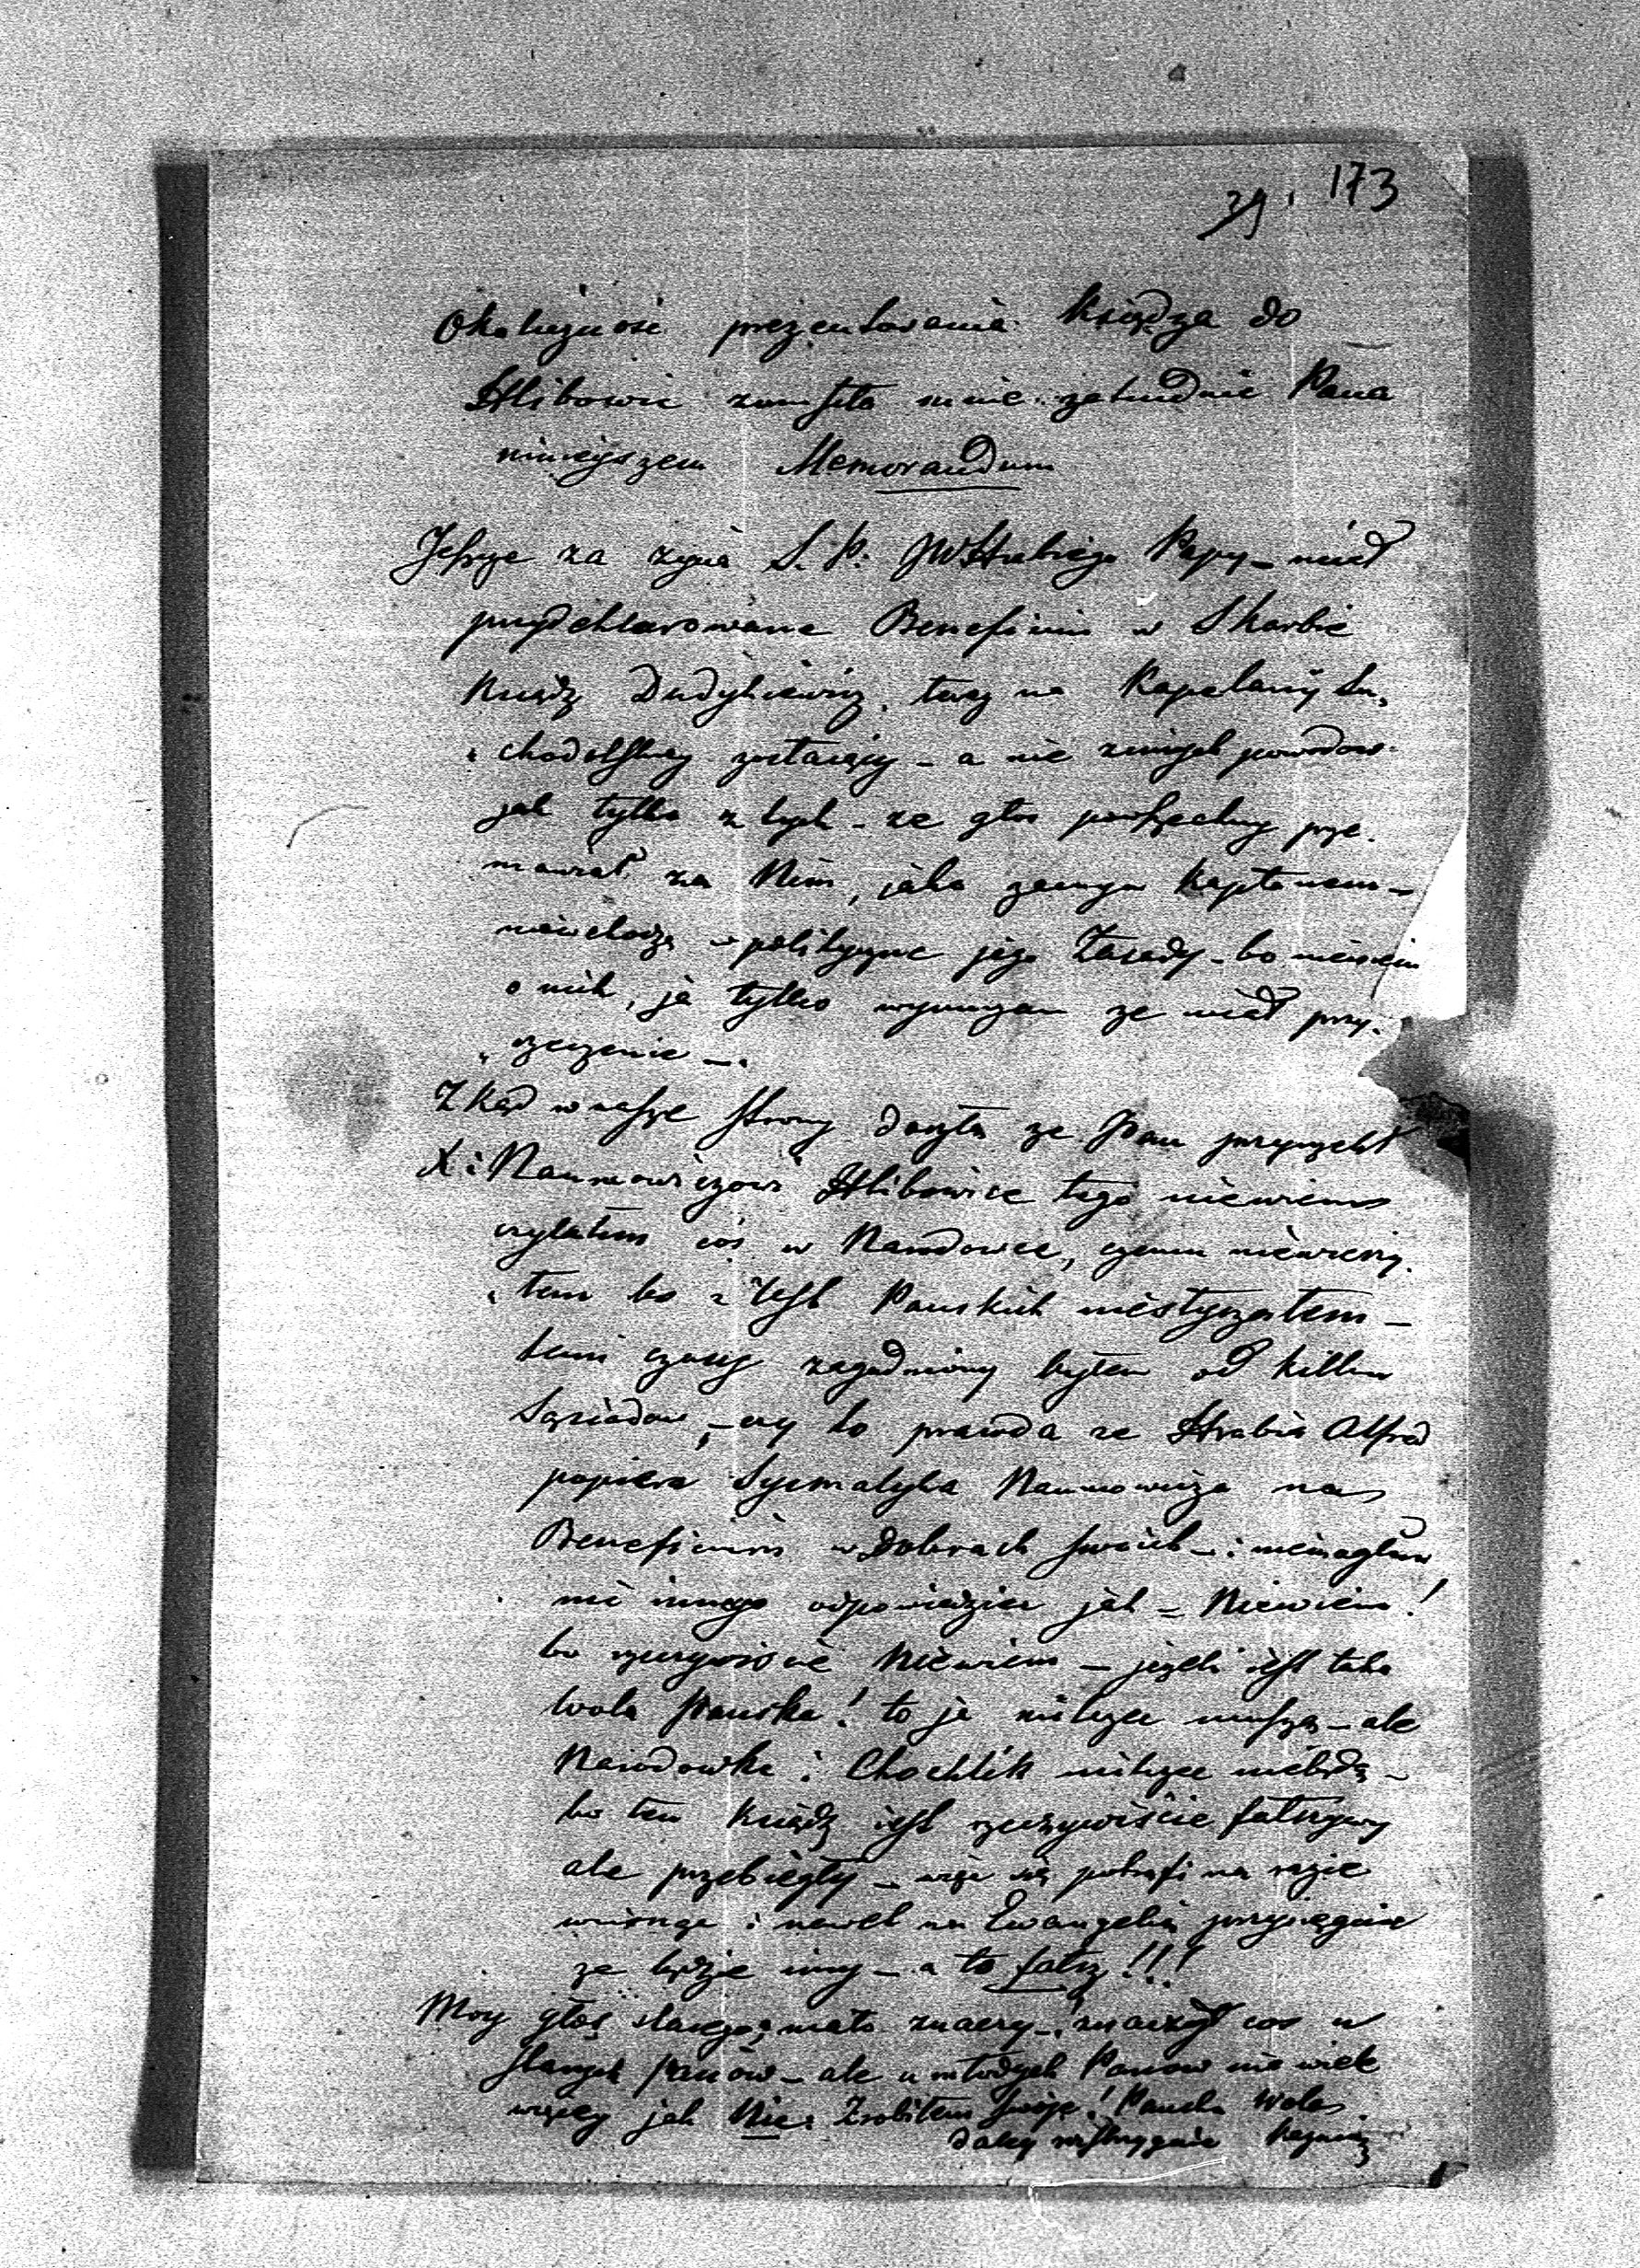 39. 173
Okoliczność prezentowania Księdza do
Hlibowic zmusiła mnie zatrudnić Pana
niniejszem Memorandum
Jeszcze za życia S. P. JWHrabiego Papy – miał
przydeklarowane Beneficium w Skarbie
Ksiądz Dudykiewicz, teraz na Kapelanij Su„
„chodolskiey zostaiący – a nie z innych powodow
jak tylko z tych – że głos powszechny prze.
mawiał za Nim, jako zacnym Kapłanem –
niewchodzę w polityczne jego Zasady – bo niewiem
o nich, ja tylko wymieniam że miał przy„
„rzeczenie –.
Z kąd w nasze strony doszło że Pan przyrzekł
X: Naumowiczowi Hlibowice tego niewiem
czytałem coś w Narodowce, czemu niewierzy„
„łem bo z Ust Pańskich niesłyszałem –
temi czasy zagadniony byłem od kilku
Sąsiadow, – czy to prawda że Hrabia Alfred
popiera Syzmatyka Naumowicza na
Beneficium w Dobrach swoich – i niemogłem
nic innego odpowiedzieć jak – Niewiem!
bo rzeczywiście Niewiem – jeżeli iest taka
wola Pańska! to ja milczeć muszę – ale
Narodowka i Chochlik milczeć niebędą –
bo ten Ksiądz iest rzeczywiście fałszywy
ale przebiegły – więc się potrafi na razie
wcisnąć i nawet na Ewangelią przysięgnie
że będzie inny – a to fałsz!!!
Moy głos starego, mało znaczy – znaczył coś u
starych Panów – ale u młodych Panow nie wiele
więcey jak Nic. Zrobiłem swoje! Pańska Wola
daley rozstrzygnie